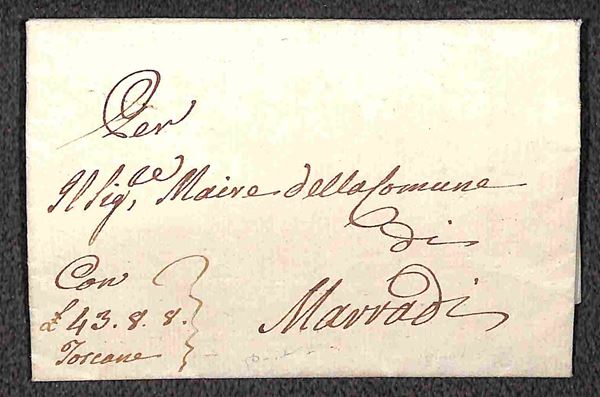 Per
Il Sig.re Maire della Comune
di
Marradi
Con
£ 43. 8. 8.
Toscane